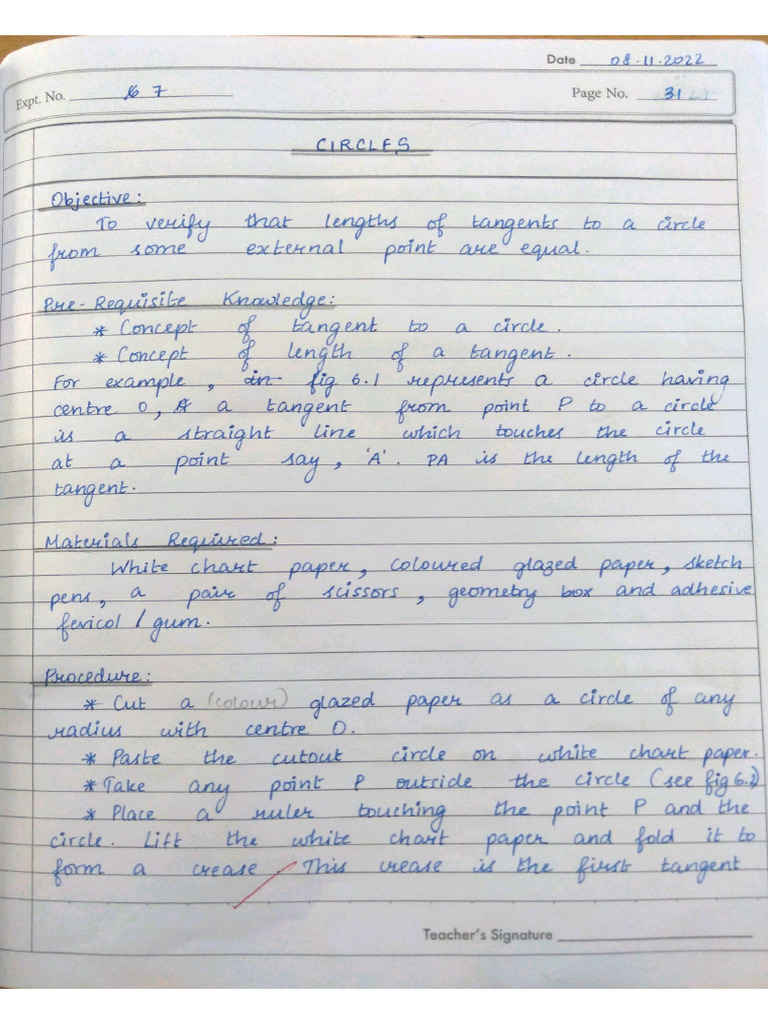 Date 08.11.2022
Expt. No. 7
Page No. 31
CIRCLES
Objective:
To verify that lengths of tangents to a circle
from some external point are equal.
Pre-Requisite Knowledge:
* Concept of tangent to a circle.
* Concept of length of a tangent.
For example, in fig 6.1 represents a circle having
centre O, A a tangent from point P to a circle
is a straight line which touches the circle
at a point say, 'A'. PA is the length of the
tangent.
Materials Required:
White chart paper, coloured glazed paper, sketch
pens, a pair of scissors, geometry box and adhesive
fevicol / gum.
Procedure:
* Cut a (colour) glazed paper as a circle of any
radius with centre O.
* Paste the cutout circle on white chart paper.
* Take any point P outside the circle (see fig 6.2)
* Place a ruler touching the point P and the
circle. Lift the white chart paper and fold it to
form a crease. This crease is the first tangent
Teacher's Signature